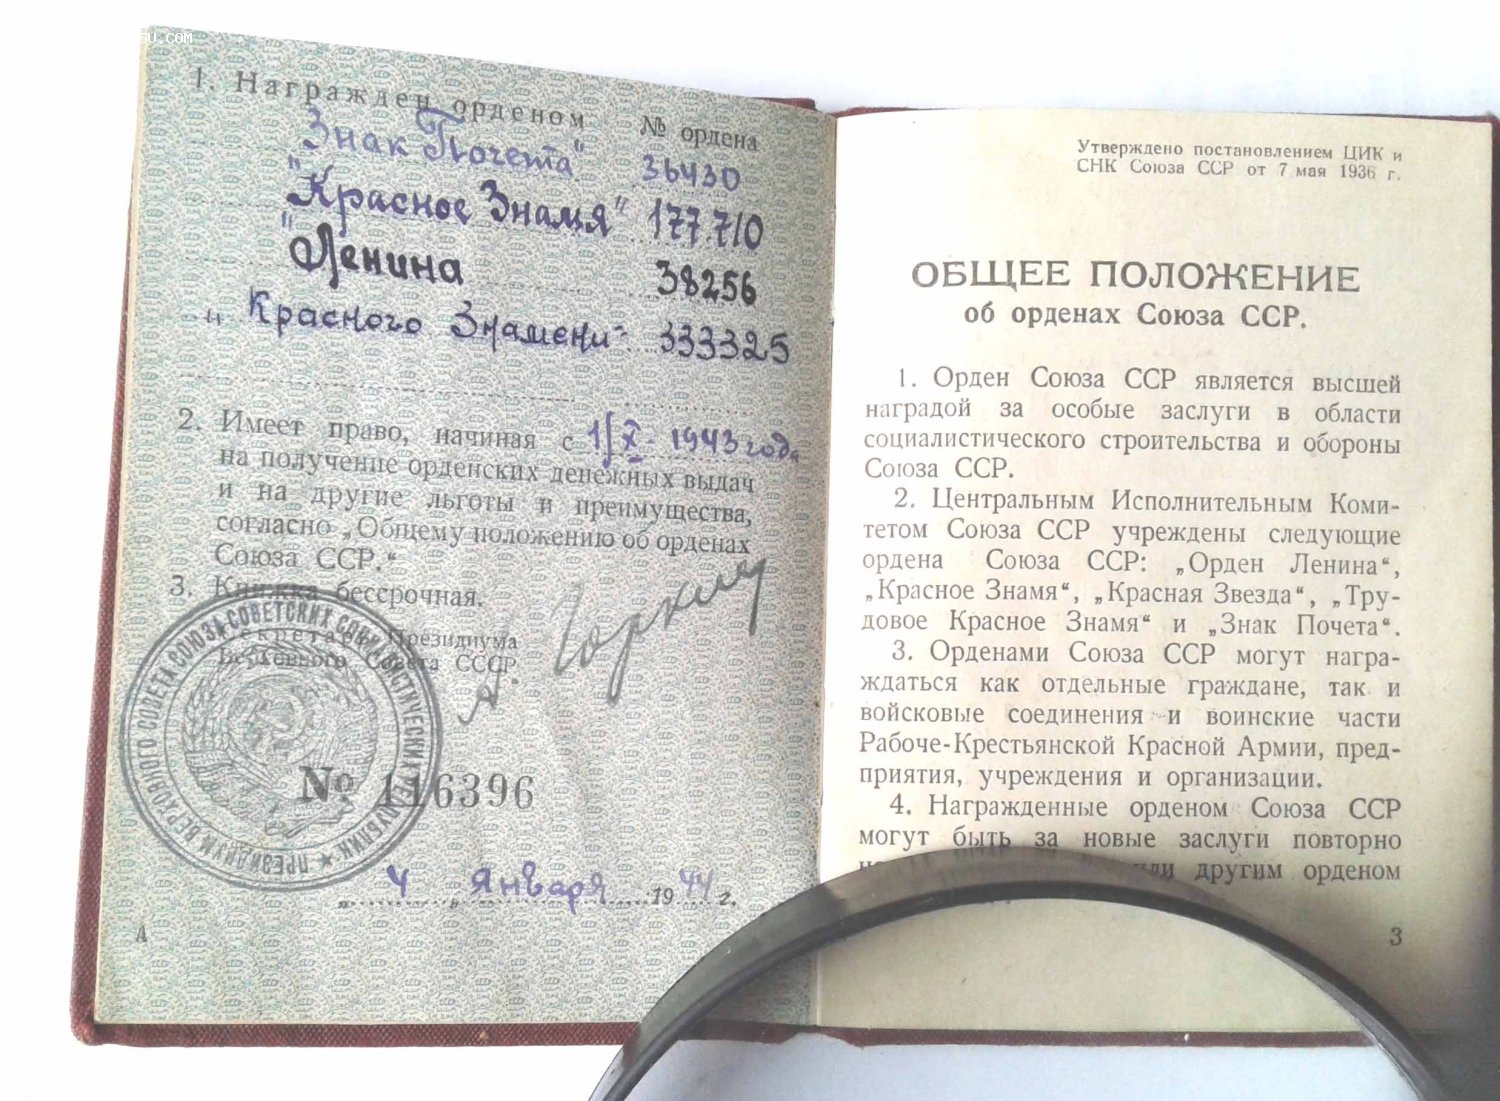 u.com
1. Награжден орденом № ордена
"Знак Почета" 36430
"Красное Знамя" 177.710
"Ленина 38256
" Красного Знамени" 333325
2. Имеет право, начиная с 1/X - 1943 год.
на получение орденских денежных выдач
и на другие льготы и преимущества,
согласно „Общему положению об орденах
Союза ССР.“
3. Книжка бессрочная.
Секретарь Президиума
Верховного Совета СССР.
А Горкин
ПРЕЗИДИУМ ВЕРХОВНОГО СОВЕТА СОЮЗА СОВЕТСКИХ СОЦИАЛИСТИЧЕСКИХ РЕСПУБЛИК ★
№ 116396
„ 4 „ января 1944 г.
А
Утверждено постановлением ЦИК и
СНК Союза ССР от 7 мая 1936 г.
ОБЩЕЕ ПОЛОЖЕНИЕ
об орденах Союза ССР.
1. Орден Союза ССР является высшей
наградой за особые заслуги в области
социалистического строительства и обороны
Союза ССР.
2. Центральным Исполнительным Коми-
тетом Союза ССР учреждены следующие
ордена Союза ССР: „Орден Ленина“,
„Красное Знамя“, „Красная Звезда“, „Тру-
довое Красное Знамя“ и „Знак Почета“.
3. Орденами Союза ССР могут награ-
ждаться как отдельные граждане, так и
войсковые соединения и воинские части
Рабоче-Крестьянской Красной Армии, пред-
приятия, учреждения и организации.
4. Награжденные орденом Союза ССР
могут быть за новые заслуги повторно
или другим орденом
3